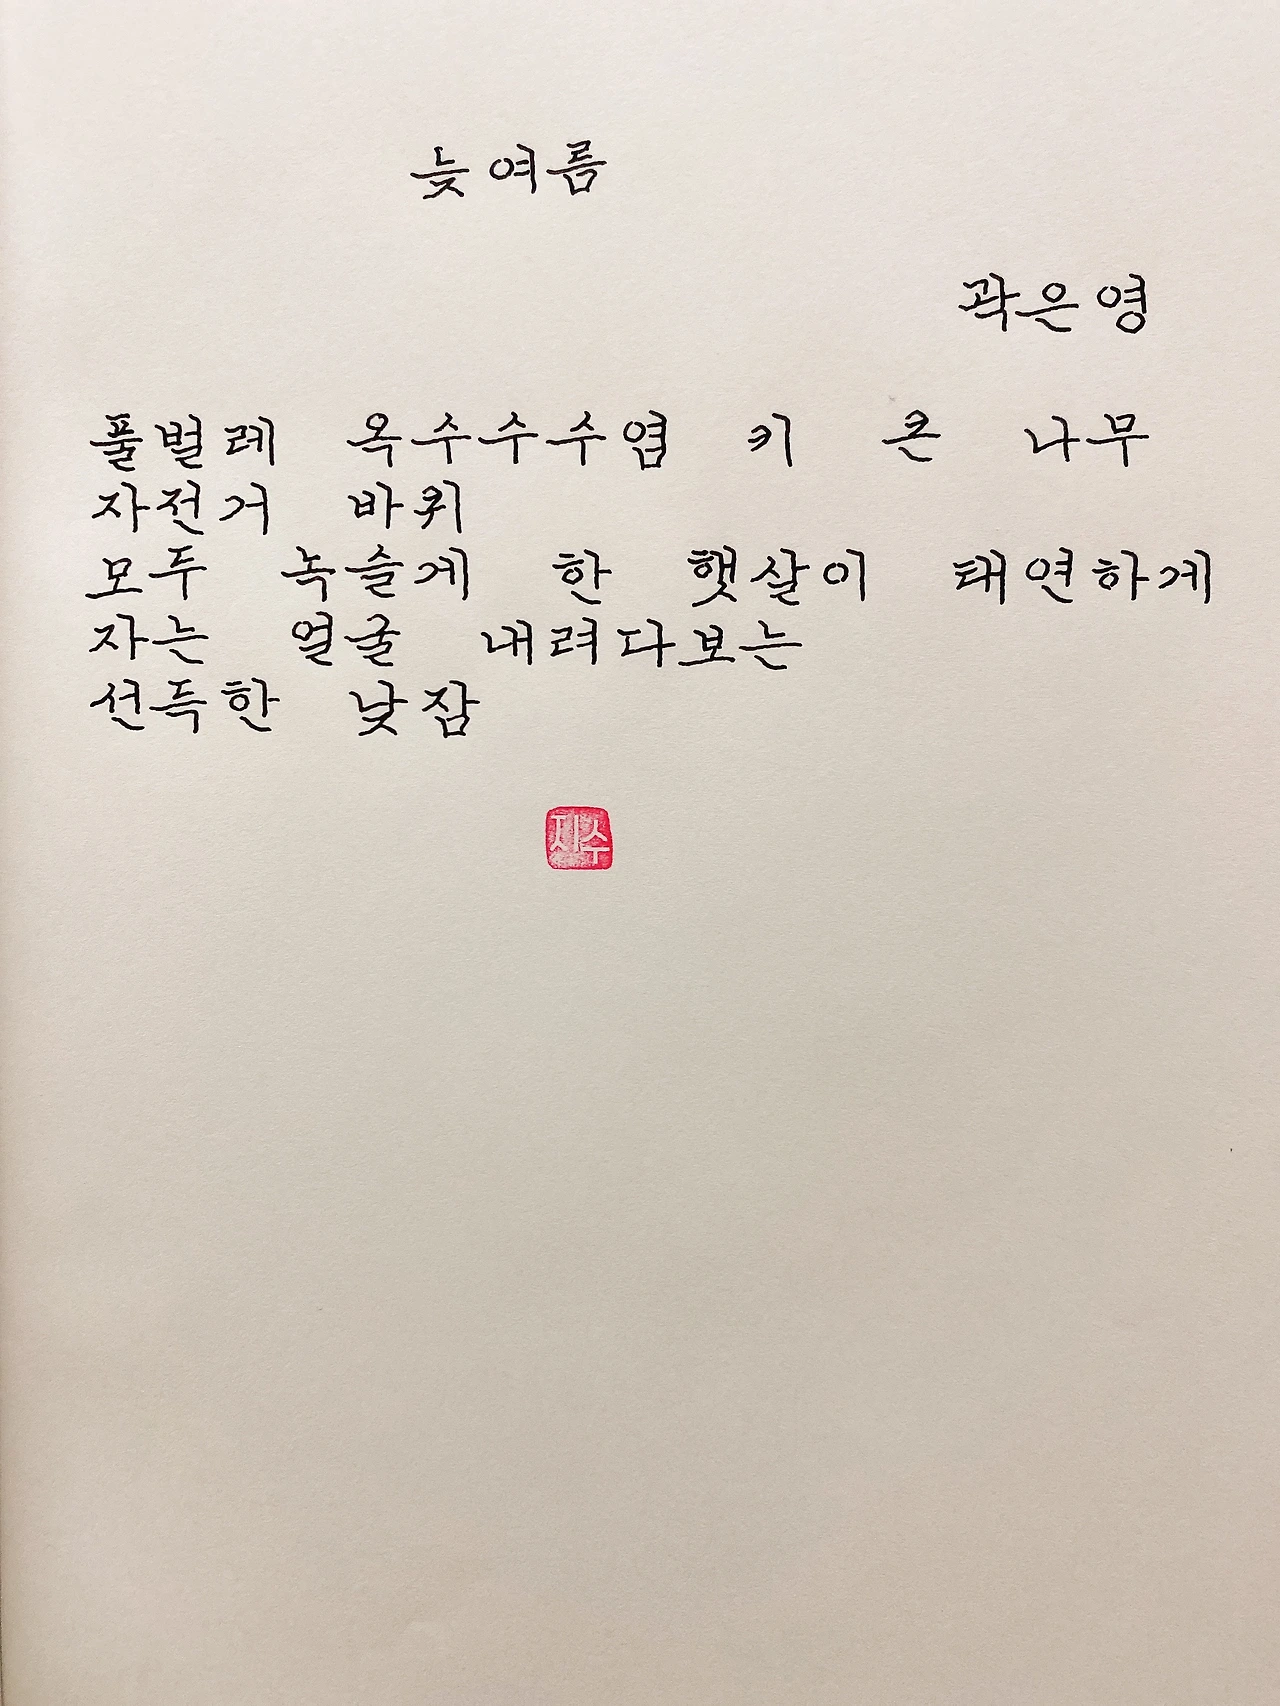 늦여름
곽은영
풀벌레 옥수수수염 키 큰 나무
자전거 바퀴
모두 녹슬게 한 햇살이 태연하게
자는 얼굴 내려다보는
선득한 낮잠
지수